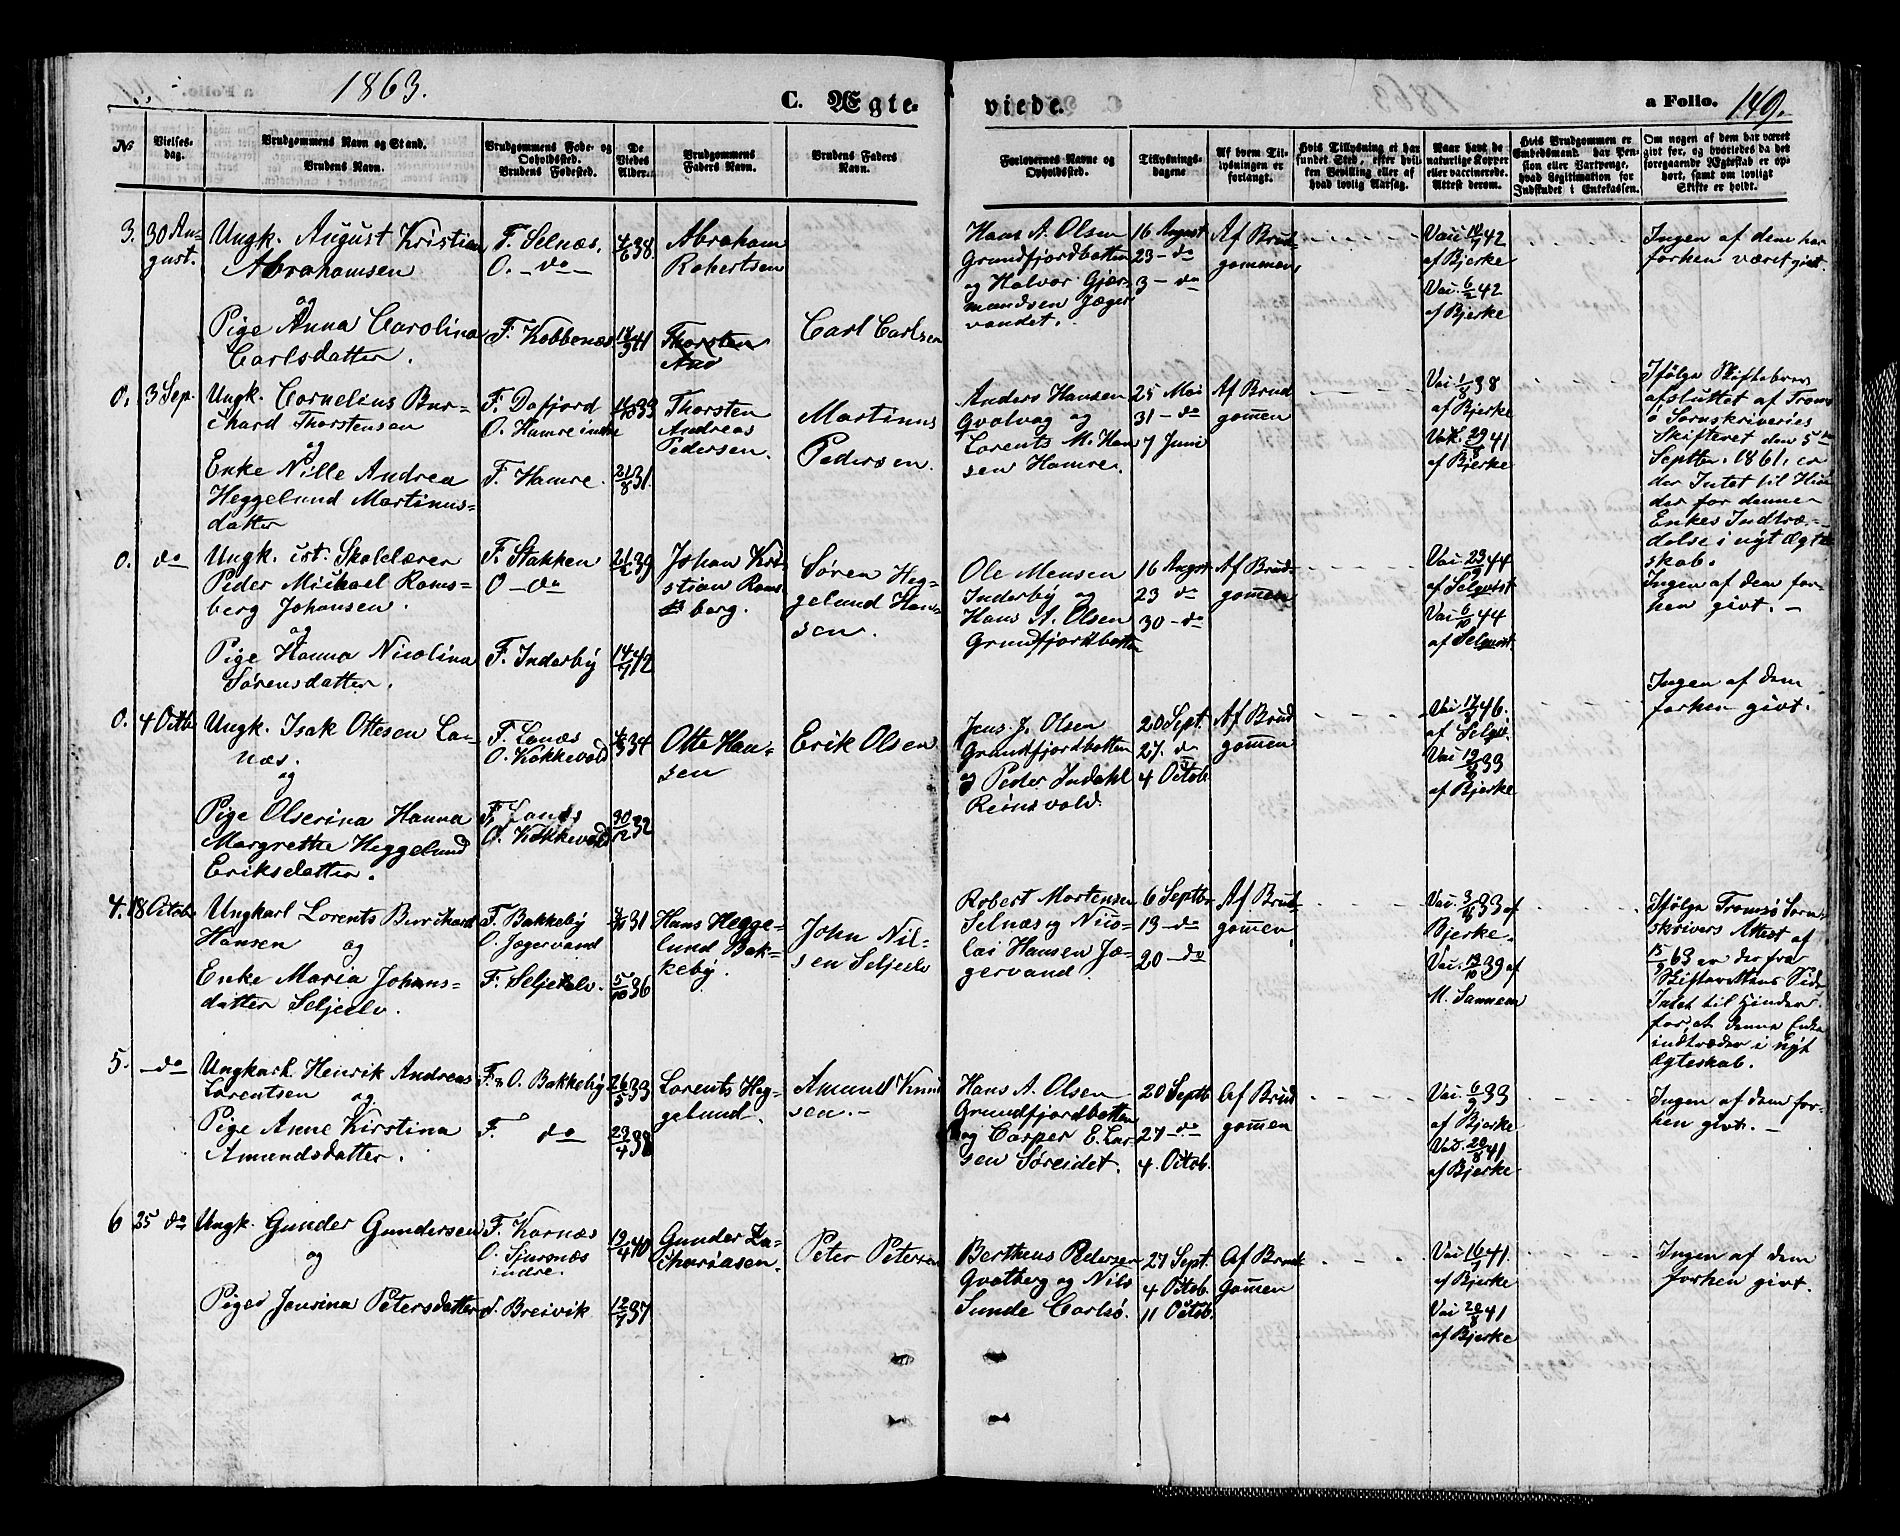 1863.
C. Ægte-
viede.
a Folio. 149.
No
Vielses-
dag.
Brudgommens Navn og Stand.
Brudens Navn.
Brudgommens Føde- og
Opholdssted.
Brudens Fødested.
De
Viedes
Alder.
Brudgommens
Faders Navn.
Brudens Faders
Navn.
Forlovernes Navne og
Opholdssted.
Tillysnings-
dagene
Af hvem Til-
lysningen er
forlangt.
Hvis Tillysning et har
fundet Sted, efter hvil-
ken Bevilling eller af
hvad lovlig Aarsag.
Naar havt de
naturlige Kopper
eller vaccinerede.
Attest derom.
Hvis Brudgommen er
Embedsmand, har Pen-
sion eller Vartpenge,
hvad Legitimation for
Indskudet i Enkekassen.
Om nogen af dem har været
givt før, og hvorledes da det
foregaaende Ægteskab er op-
hørt, samt om lovligt
Skifte er holdt.
3. 30 Au-
gust.
Ungk. August Kristian
Abrahamsen
og
Pige Anna Carolina
Carlsdatter.
F. Selnæs.
O. - do -
F. Kobbenæs
4/6 38
18/9 41
Abraham
Robertsen
Thorsten
And
Carl Carlsen
Hans A. Olsen
Grundfjordbotten
og Halvor Gjær-
mundsen Jæger
vandet.
16 August
23 - do
3 - do
Af Brud-
gommen
Vac 10/7 42
af Bjerke
Vac. 6/2 42
af Bjerke
Ingen af dem har
forhen været givt.
0. 3 Sep.
Ungk. Cornelius Bur-
chard Thorstensen
og
Enke Nille Andrea
Heggelund Martinus-
datter
F. Dafjord
O. Hamre indre
F. Hamre.
33
21/8 31.
Thorsten
Andreas
Pedersen.
Martinus
Pedersen.
Anders Hansen
Qvalvag og
Lorents M. Han
sen Hamre.
25 Mai
31 - do
7 Juni
Af Brud
gommen
Vac 1/8 38
af Bjerke
Vak. 29/8 41
af Bjerke
Ifølge Skiftebrev
afsluttet af Troms
ø Sornskriveries
Skifteret den 5te
Septbr. 1861, er
der Intet til Hin
der for denne
Enkes Indtræ-
delse i nyt Ægte
skab.
0. do
Ungk. cst. Skolelærer
Peder Michael Rams-
berg Johansen.
og
Pige Hanna Nicolina
Sørensdatter.
F. Stakken
O - do
F. Inderby
21/2 39
14/7 42
Johan Kri
stian Rams
berg.
Søren Heg-
gelund Han-
sen.
Ole Mensen
Inderby og
Hans A. Olsen
Grundfjordbotten
16 August
23 do
30 - do
Af Brud-
gommen
Vac 23/9 44
af Selqvist
Vac 6/10 44
af Selqvist
Ingen af dem for-
hen givt. -
0. 4 Octb
Ungk. Isak Ottesen La-
næs.
og
Pige Olserina Hanna
Margrethe Heggelund
Eriksdatter.
F. Lanæs
O. Kokkevold
F. Lanæs
O. Kokkevold
34
30/12 32
Otte Han-
sen
Erik Olsen
Jens J. Olsen
Grundfjordbotten
og Peder Indahl
Reinsvold.
20 Sept.
27. do
4 Octob.
Af Brud
gommen
Vac 17/8 46.
af Selqv.
Vac 33
af Bjerke
Ingen af dem
forhen givt.
4. 18 Octob
Ungkarl Lorents Burchard
Hansen og
Enke Maria Johans-
datter Seljeelv.
F. Bakkeby
O. Jægervand
F. Seljeelv.
31
5/10 36
Hans Hegge-
lund Bak-
keby.
John Nil-
sen Seljeelv
Robert Mortensen
Selnæs og Nico-
lai Hansen Jæ-
gervand
6 Septbr
13 - do
20 - do
Af Brud-
gommen
Vac. 33 af
Bjerke.
Vac. 13/10 39 af
M. Sannem
Ifølge Tromsø Sorn
skrivers Attest af
15/9 63 er der fra
Skifterettens Side
Intet til Hinder
for, at denne Enke
indtræder i nyt
Ægteskab.
5. do
Ungkarl Henrik Andreas
Lorentsen og
Pige Anne Kirstina
Amundsdatter.
F. & O. Bakkeby
F. do
26/5 33
23/4 38
Lorents Heg-
gelund
Amund Knud
sen. -
Hans A. Olsen
Grundfjordbotten
og Casper E. Lar-
sen Søreidet.
20 Septb
27 - do
4. Octob.
Af Brud
gommen
Vac. 6/9 33
af Bjerke
Vac. 20/8 41
af Bjerke
Ingen af dem for-
hen givt. -
6 25 do
Ungk. Gunder Gundersen
og
Piges Jensina Petersdatter
F. Kornæs
O. Sjursnæs
indre.
F. Breivik
19/4 40
12/7 37
Gunder Za-
chariasen.
Peter Petersen
Bertheus Pedersen
Qvatberg og Nils
Sunde Carlsø.
27 Sept.
4 Octob.
11 Octob.
Af Brud-
gommen
Vac 16/7 41.
af Bjerke
Vac 20/8 41
af Bjerke
Ingen af dem
forhen givt.